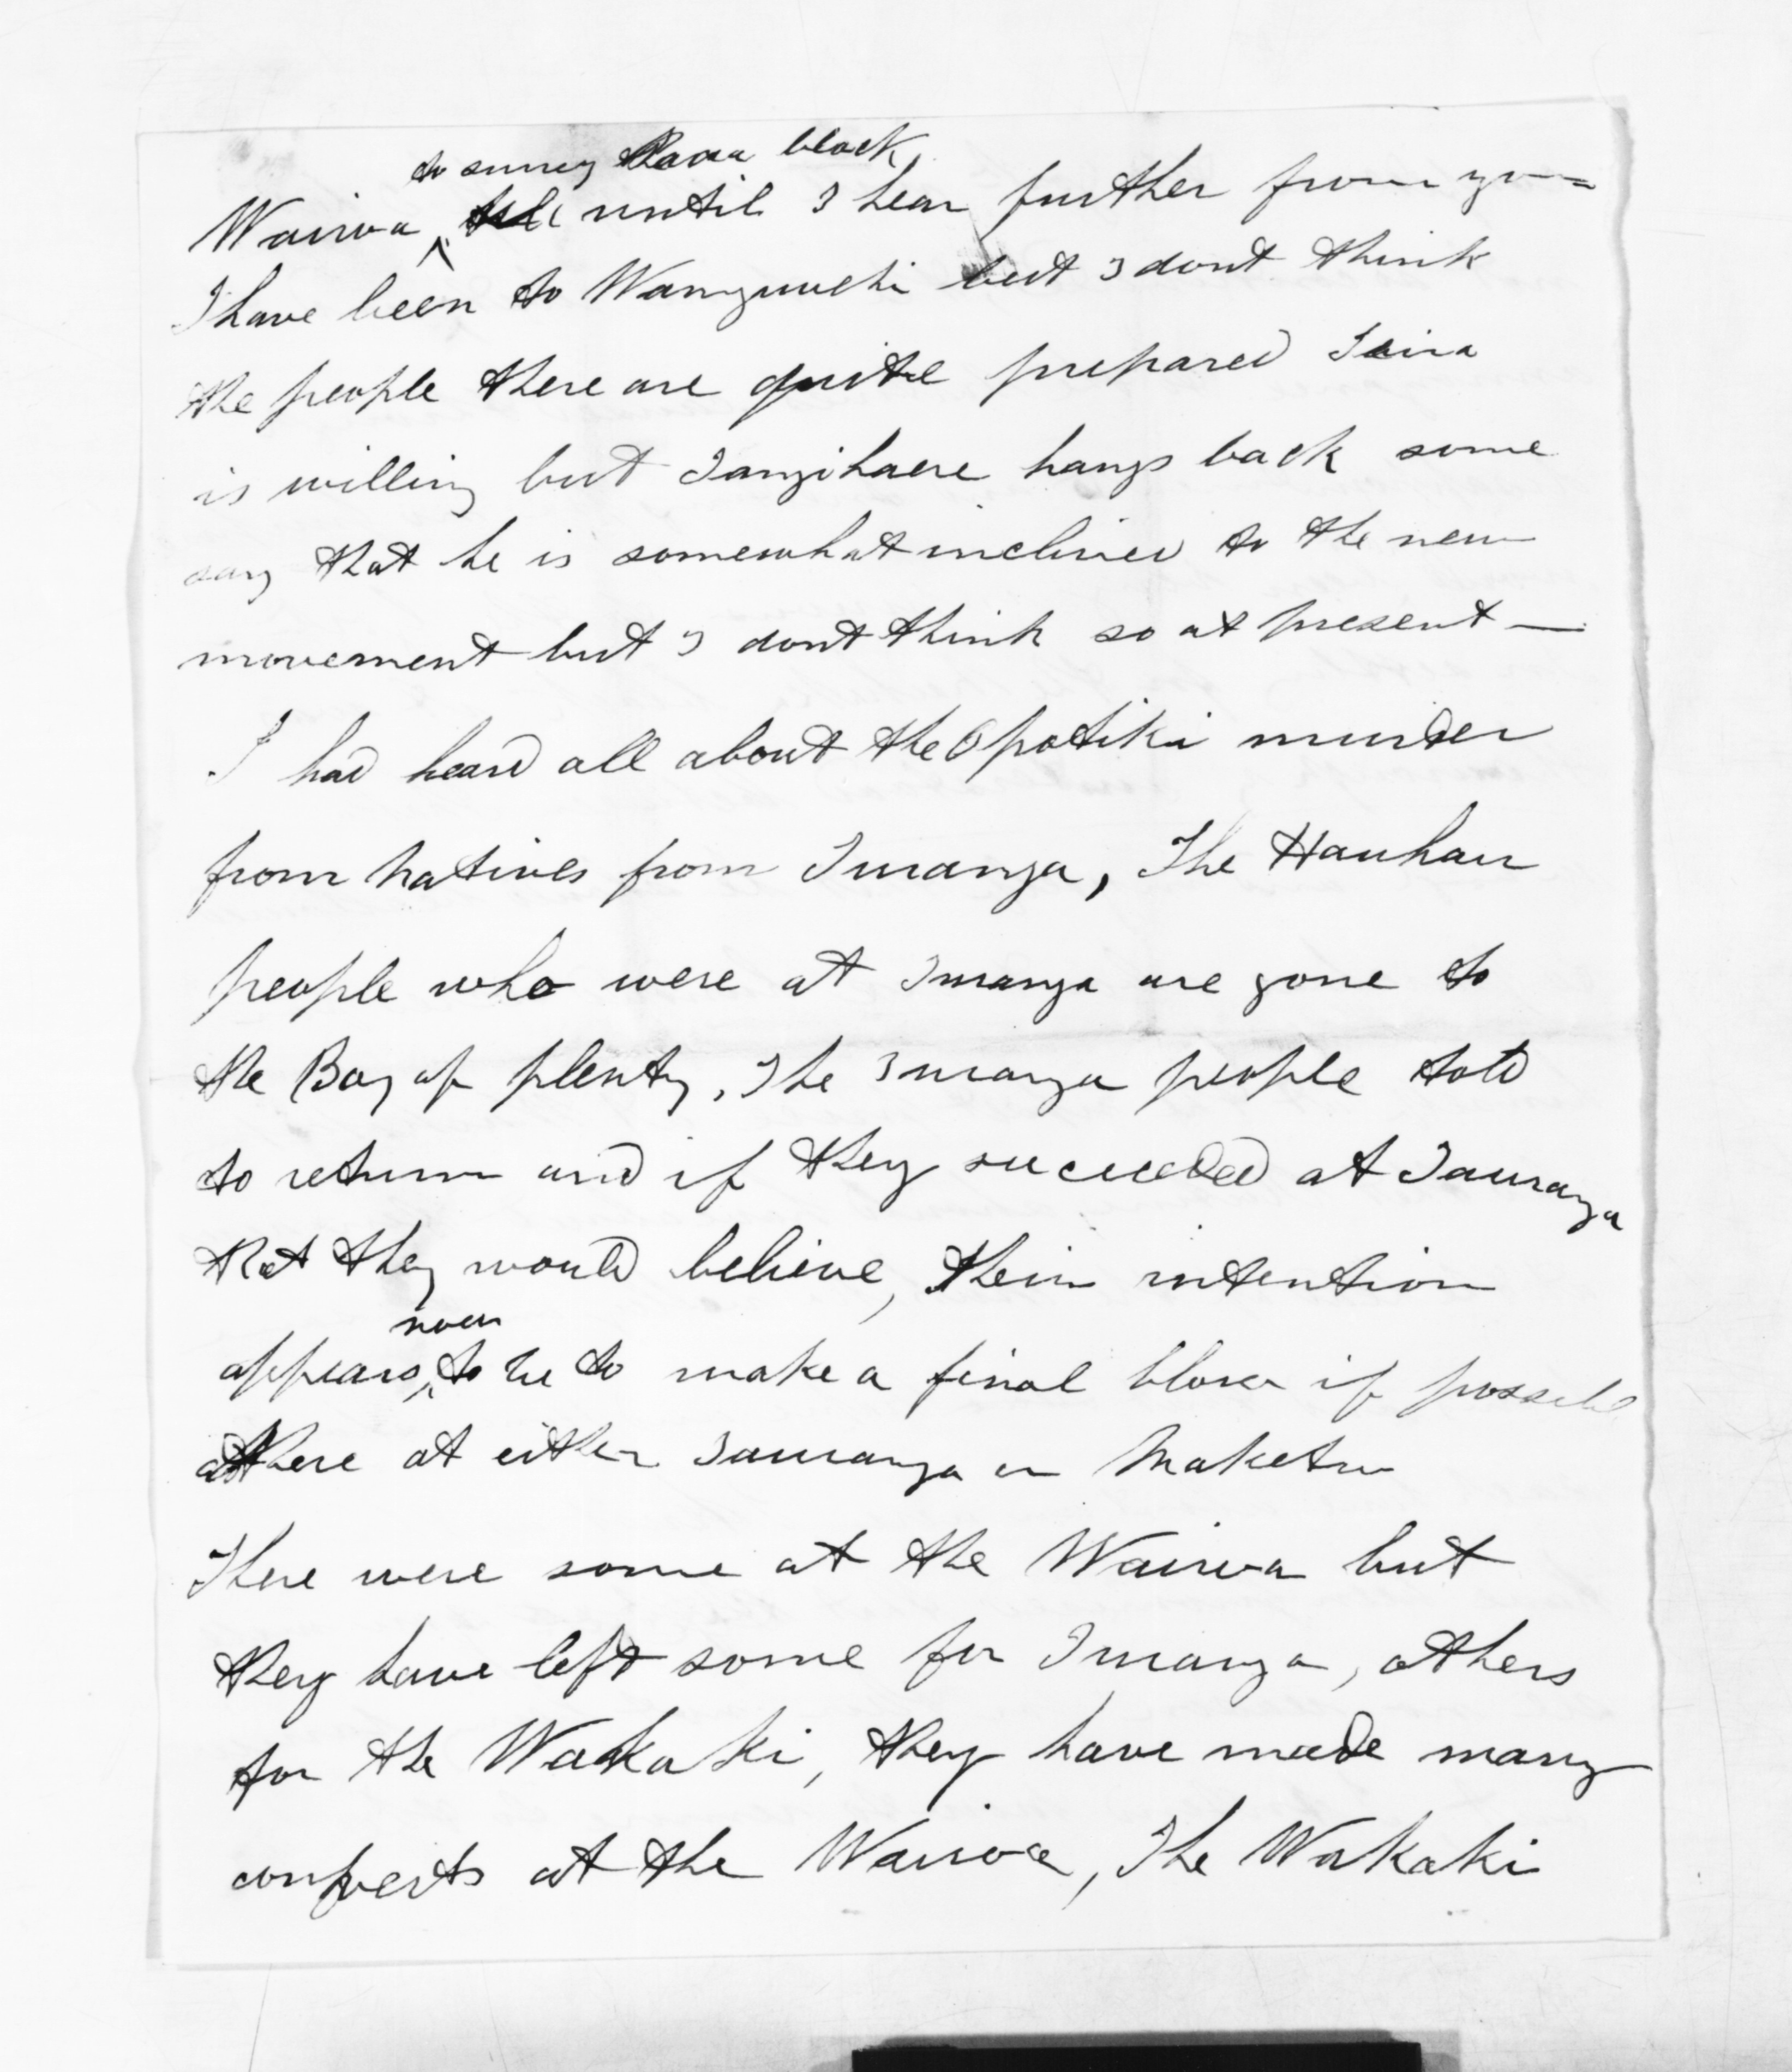 to survey block,
Wairoa until I hear further from you
I have been to Wangawehi but I dont think
the people there are quite prepared
is willing but Tangihaere hangs back some
say that he is somewhat inclined to the new
movement but I dont think so at present —
I had heard all about the Opotiki murder
from natives from Turanga, The Hauhau
people who were at Turanga are gone to
the Bay of plenty, The Turanga people told
to return and if they succeeded at Tauranga
that they would believe, their intention
now
appears to be to make a final blow if possible
there at either Tauranga or Maketu
There were some at the Wairoa but
they have left some for Turanga, others
for the Wakaki, they have made many
converts at the Wairoa, The Wakaki